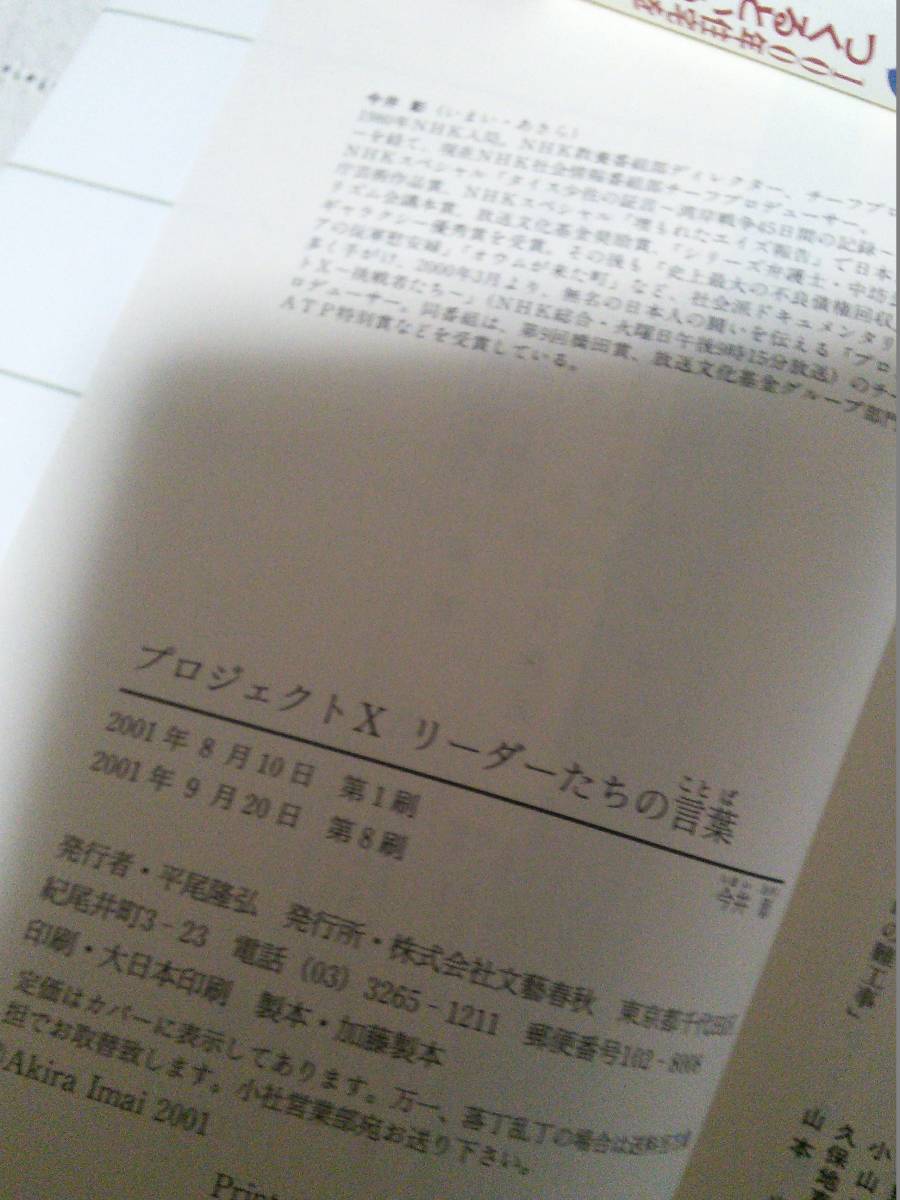 100年住宅を
つくると
今井 彰（いまい・あきら）
1980年NHK入局。NHK教養番組部ディレクター、チーフプロ
ーを経て、現在NHK社会情報番組部チーフプロデューサー。
NHKスペシャル「タイス少佐の証言－湾岸戦争45日間の記録－
庁芸術作品賞、NHKスペシャル「埋もれたエイズ報告」で日本
リズム会議本賞、放送文化基金奨励賞、「シリーズ弁護士・中坊公
ギャラクシー優秀賞を受賞。その後も「史上最大の不良債権回収
アの従軍慰安婦」「オウムが来た町」など、社会派ドキュメンタリ
多く手がけ、2000年3月より、無名の日本人の闘いを伝える「プロ
トX－挑戦者たち－」（NHK総合・火曜日午後9時15分放送）のチー
ロデューサー。同番組は、第9回橋田賞、放送文化基金グループ部門
ATP特別賞などを受賞している。
プロジェクトX リーダーたちの言葉
ことば
2001年8月10日 第1刷
2001年9月20日 第8刷
いまい
今井
発行者・平尾隆弘 発行所・株式会社文藝春秋 東京都千代田区
紀尾井町3‐23 電話（03）3265‐1211 郵便番号102‐8008
印刷・大日本印刷 製本・加藤製本
定価はカバーに表示してあります。万一、落丁乱丁の場合は送料
担でお取替致します。小社営業部宛お送り下さい。
©Akira Imai 2001
Print
の難工事」
小山
久保地
山本